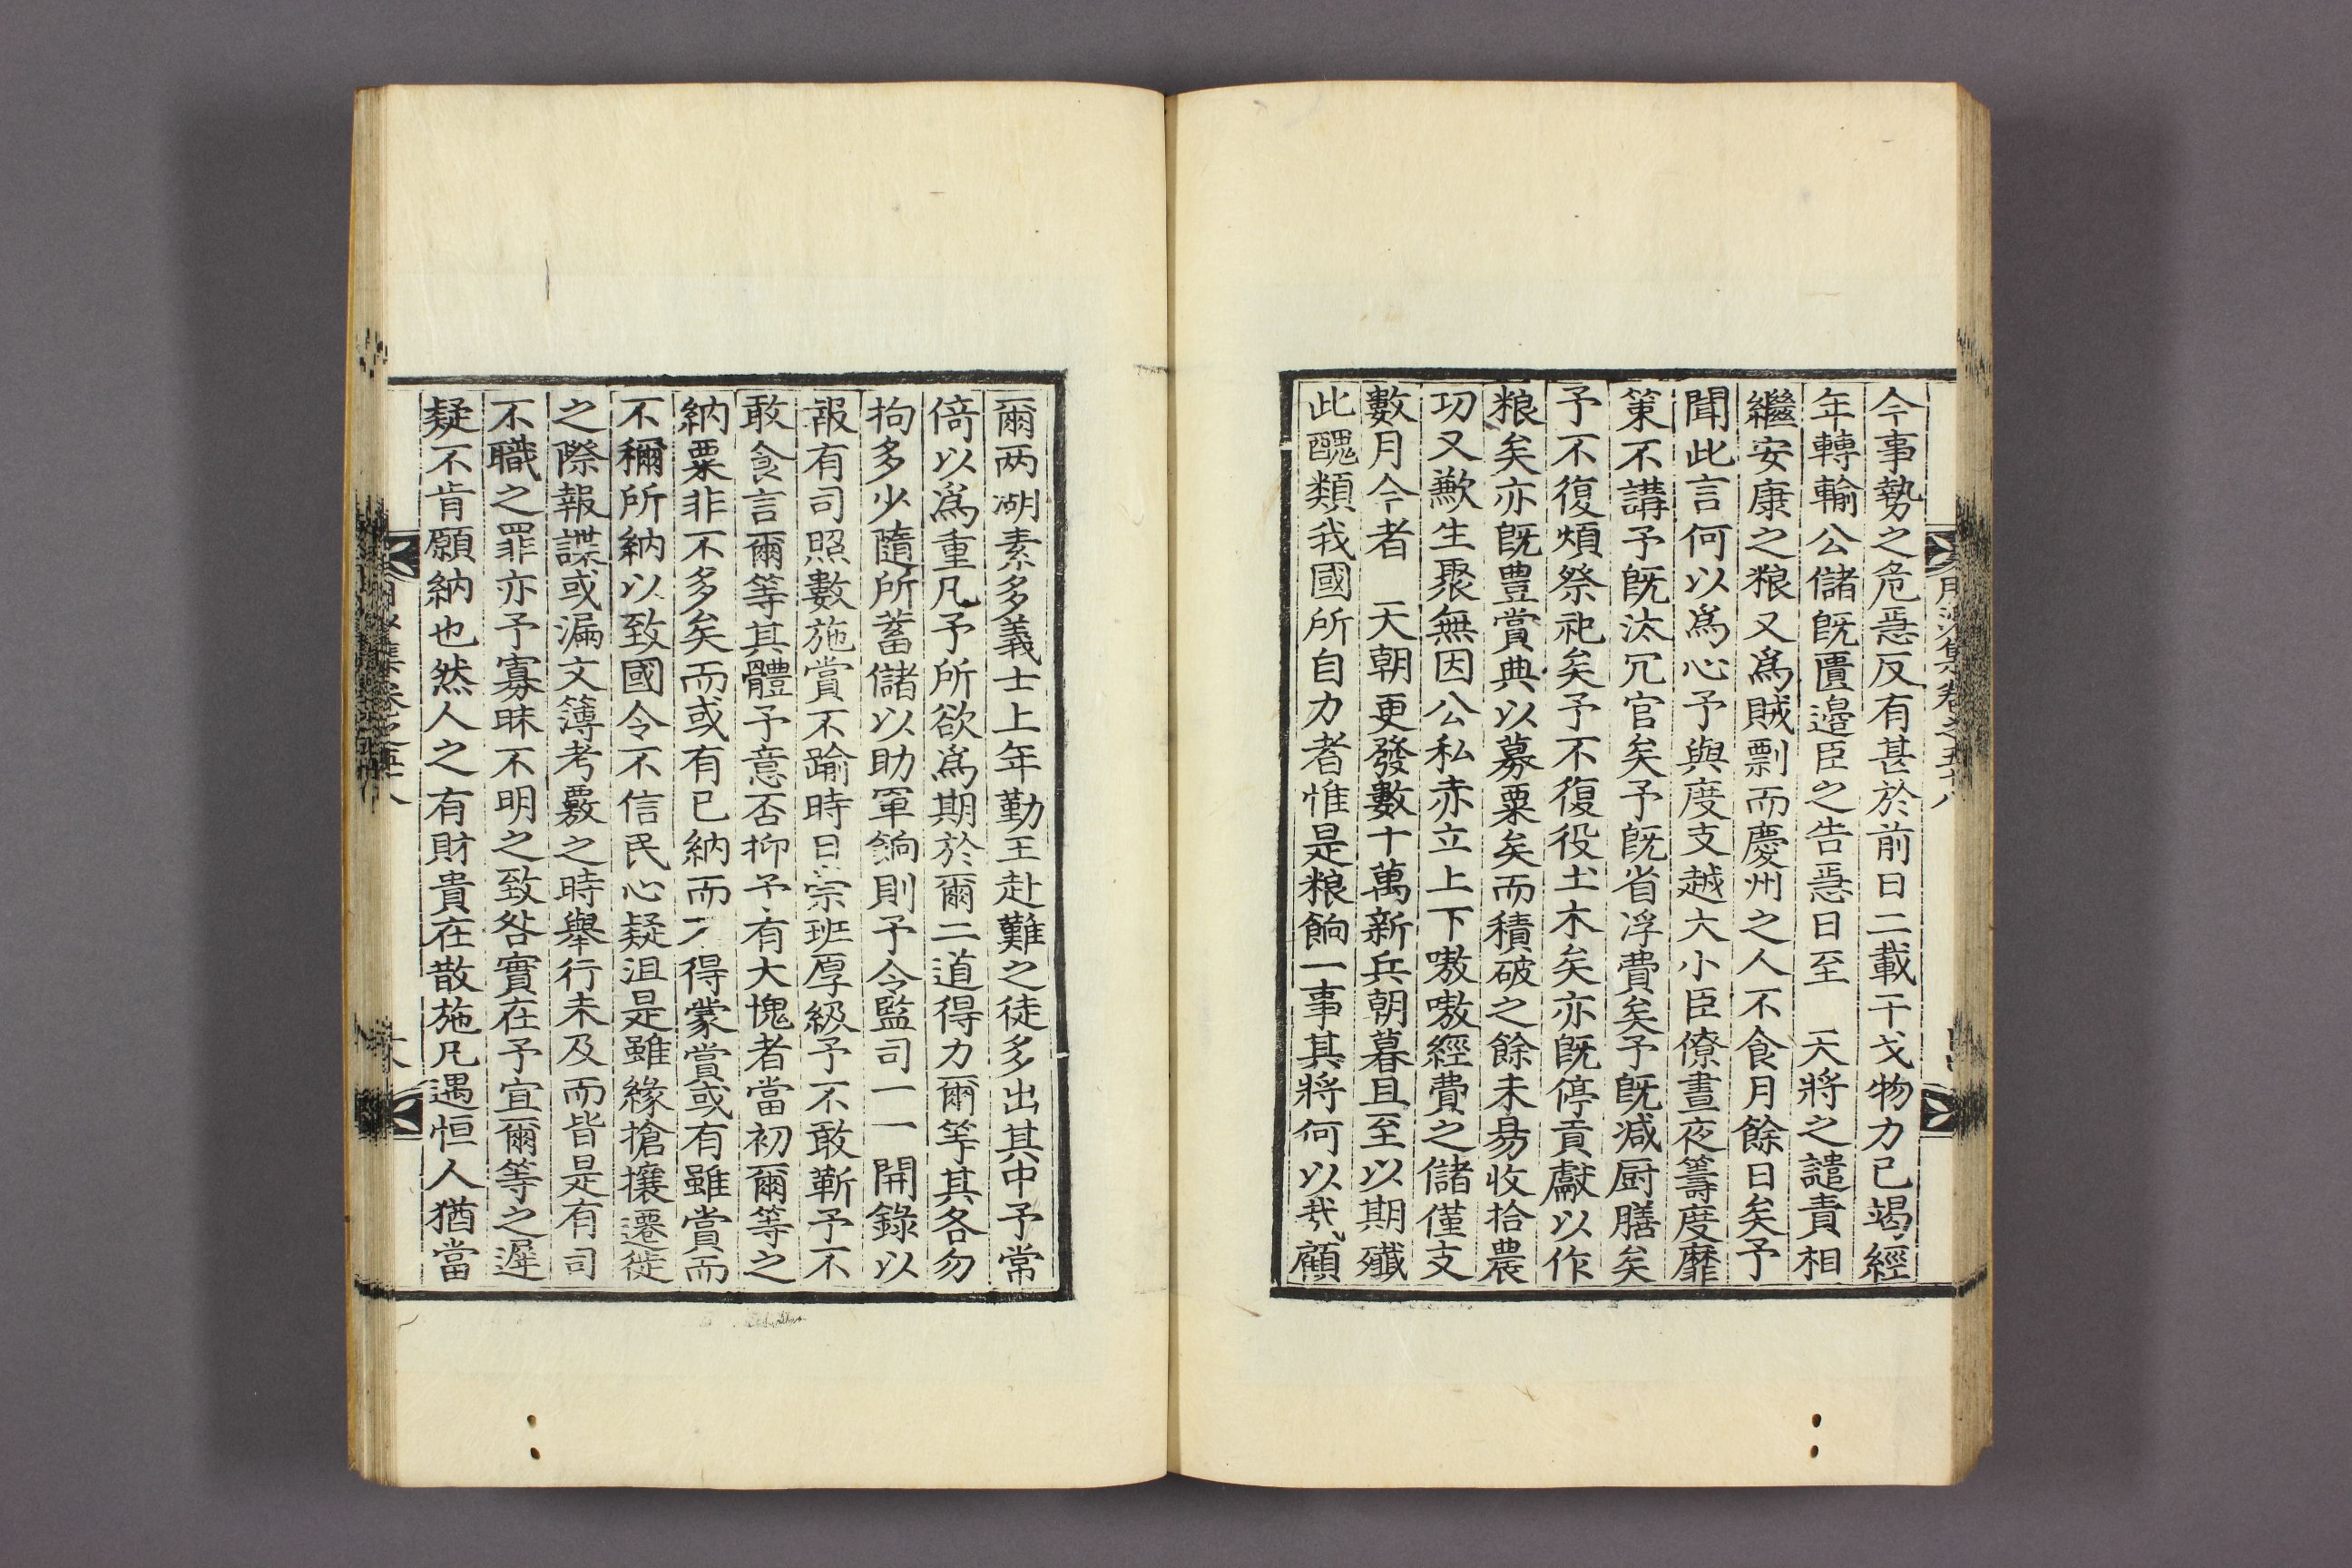 月沙集卷之五十八
今事勢之危惡反有甚於前日二載干戈物力已竭經
年轉輸公儲旣匱邉臣之告惡日至　天將之譴責相
繼安康之粮又爲賊剽而慶州之人不食月餘日矣予
聞此言何以爲心予與度支越大小臣僚晝夜籌度靡
策不講予旣汰冗官矣予旣省浮費矣予旣减厨膳矣
予不復煩祭祀矣予不復役土木矣亦旣停貢獻以作
粮矣亦旣豊賞典以募粟矣而積破之餘未易收拾農
功又歉生聚無因公私赤立上下嗷嗷經費之儲僅支
數月今者　天朝更發數十萬新兵朝暮且至以期殲
此醜類我國所自力者惟是粮餉一事其將何以哉顧
爾两湖素多義士上年勤王赴難之徒多出其中予常
倚以爲重凡予所欲爲期於爾二道得力爾等其各勿
拘多少隨所蓄儲以助軍餉則予令監司一一開錄以
報有司照數施賞不踰時日崇班厚級予不敢靳予不
敢食言爾等其體予意否抑予有大愧者當初爾等之
納粟非不多矣而或有已納而不得蒙賞或有雖賞而
不稱所納以致國令不信民心疑沮是雖緣搶攘遷徙
之際報諜或漏文簿考覈之時舉行未及而皆是有司
不職之罪亦予寡昧不明之致咎實在予宜爾等之遲
疑不肯願納也然人之有財貴在散施凡遇恒人猶當